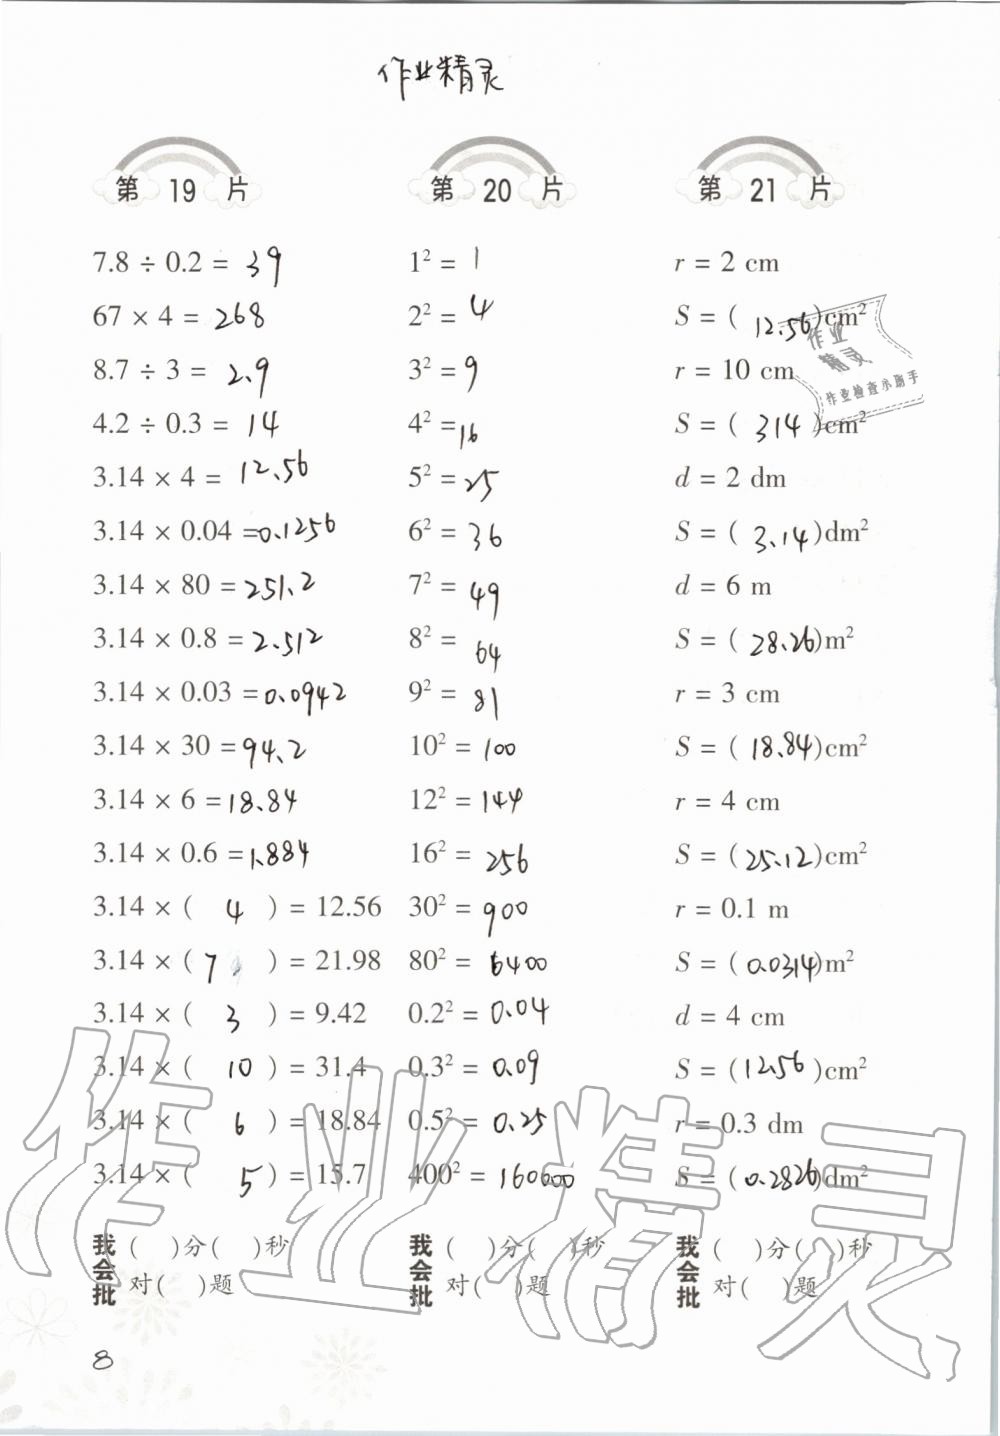 作业精灵
第 19 片
7.8 ÷ 0.2 = 39
67 × 4 = 268
8.7 ÷ 3 = 2.9
4.2 ÷ 0.3 = 14
3.14 × 4 = 12.56
3.14 × 0.04 = 0.1256
3.14 × 80 = 251.2
3.14 × 0.8 = 2.512
3.14 × 0.03 = 0.0942
3.14 × 30 = 94.2
3.14 × 6 = 18.84
3.14 × 0.6 = 1.884
3.14 × ( 4 ) = 12.56
3.14 × ( 7 ) = 21.98
3.14 × ( 3 ) = 9.42
3.14 × ( 10 ) = 31.4
3.14 × ( 6 ) = 18.84
3.14 × ( 5 ) = 15.7
我会批 ( )分( )秒
对( )题
第 20 片
1² = 1
2² = 4
3² = 9
4² = 16
5² = 25
6² = 36
7² = 49
8² = 64
9² = 81
10² = 100
12² = 144
16² = 256
30² = 900
80² = 6400
0.2² = 0.04
0.3² = 0.09
0.5² = 0.25
400² = 160000
我会批 ( )分( )秒
对( )题
第 21 片
r = 2 cm
S = ( 12.56 )cm²
r = 10 cm
S = ( 314 )cm²
d = 2 dm
S = ( 3.14 )dm²
d = 6 m
S = ( 28.26 )m²
r = 3 cm
S = ( 18.84 )cm²
r = 4 cm
S = ( 25.12 )cm²
r = 0.1 m
S = ( 0.0314 )m²
d = 4 cm
S = ( 12.56 )cm²
r = 0.3 dm
S = ( 0.2826 )dm²
我会批 ( )分( )秒
对( )题
作业
精灵
作业检查小助手
作业精灵
8